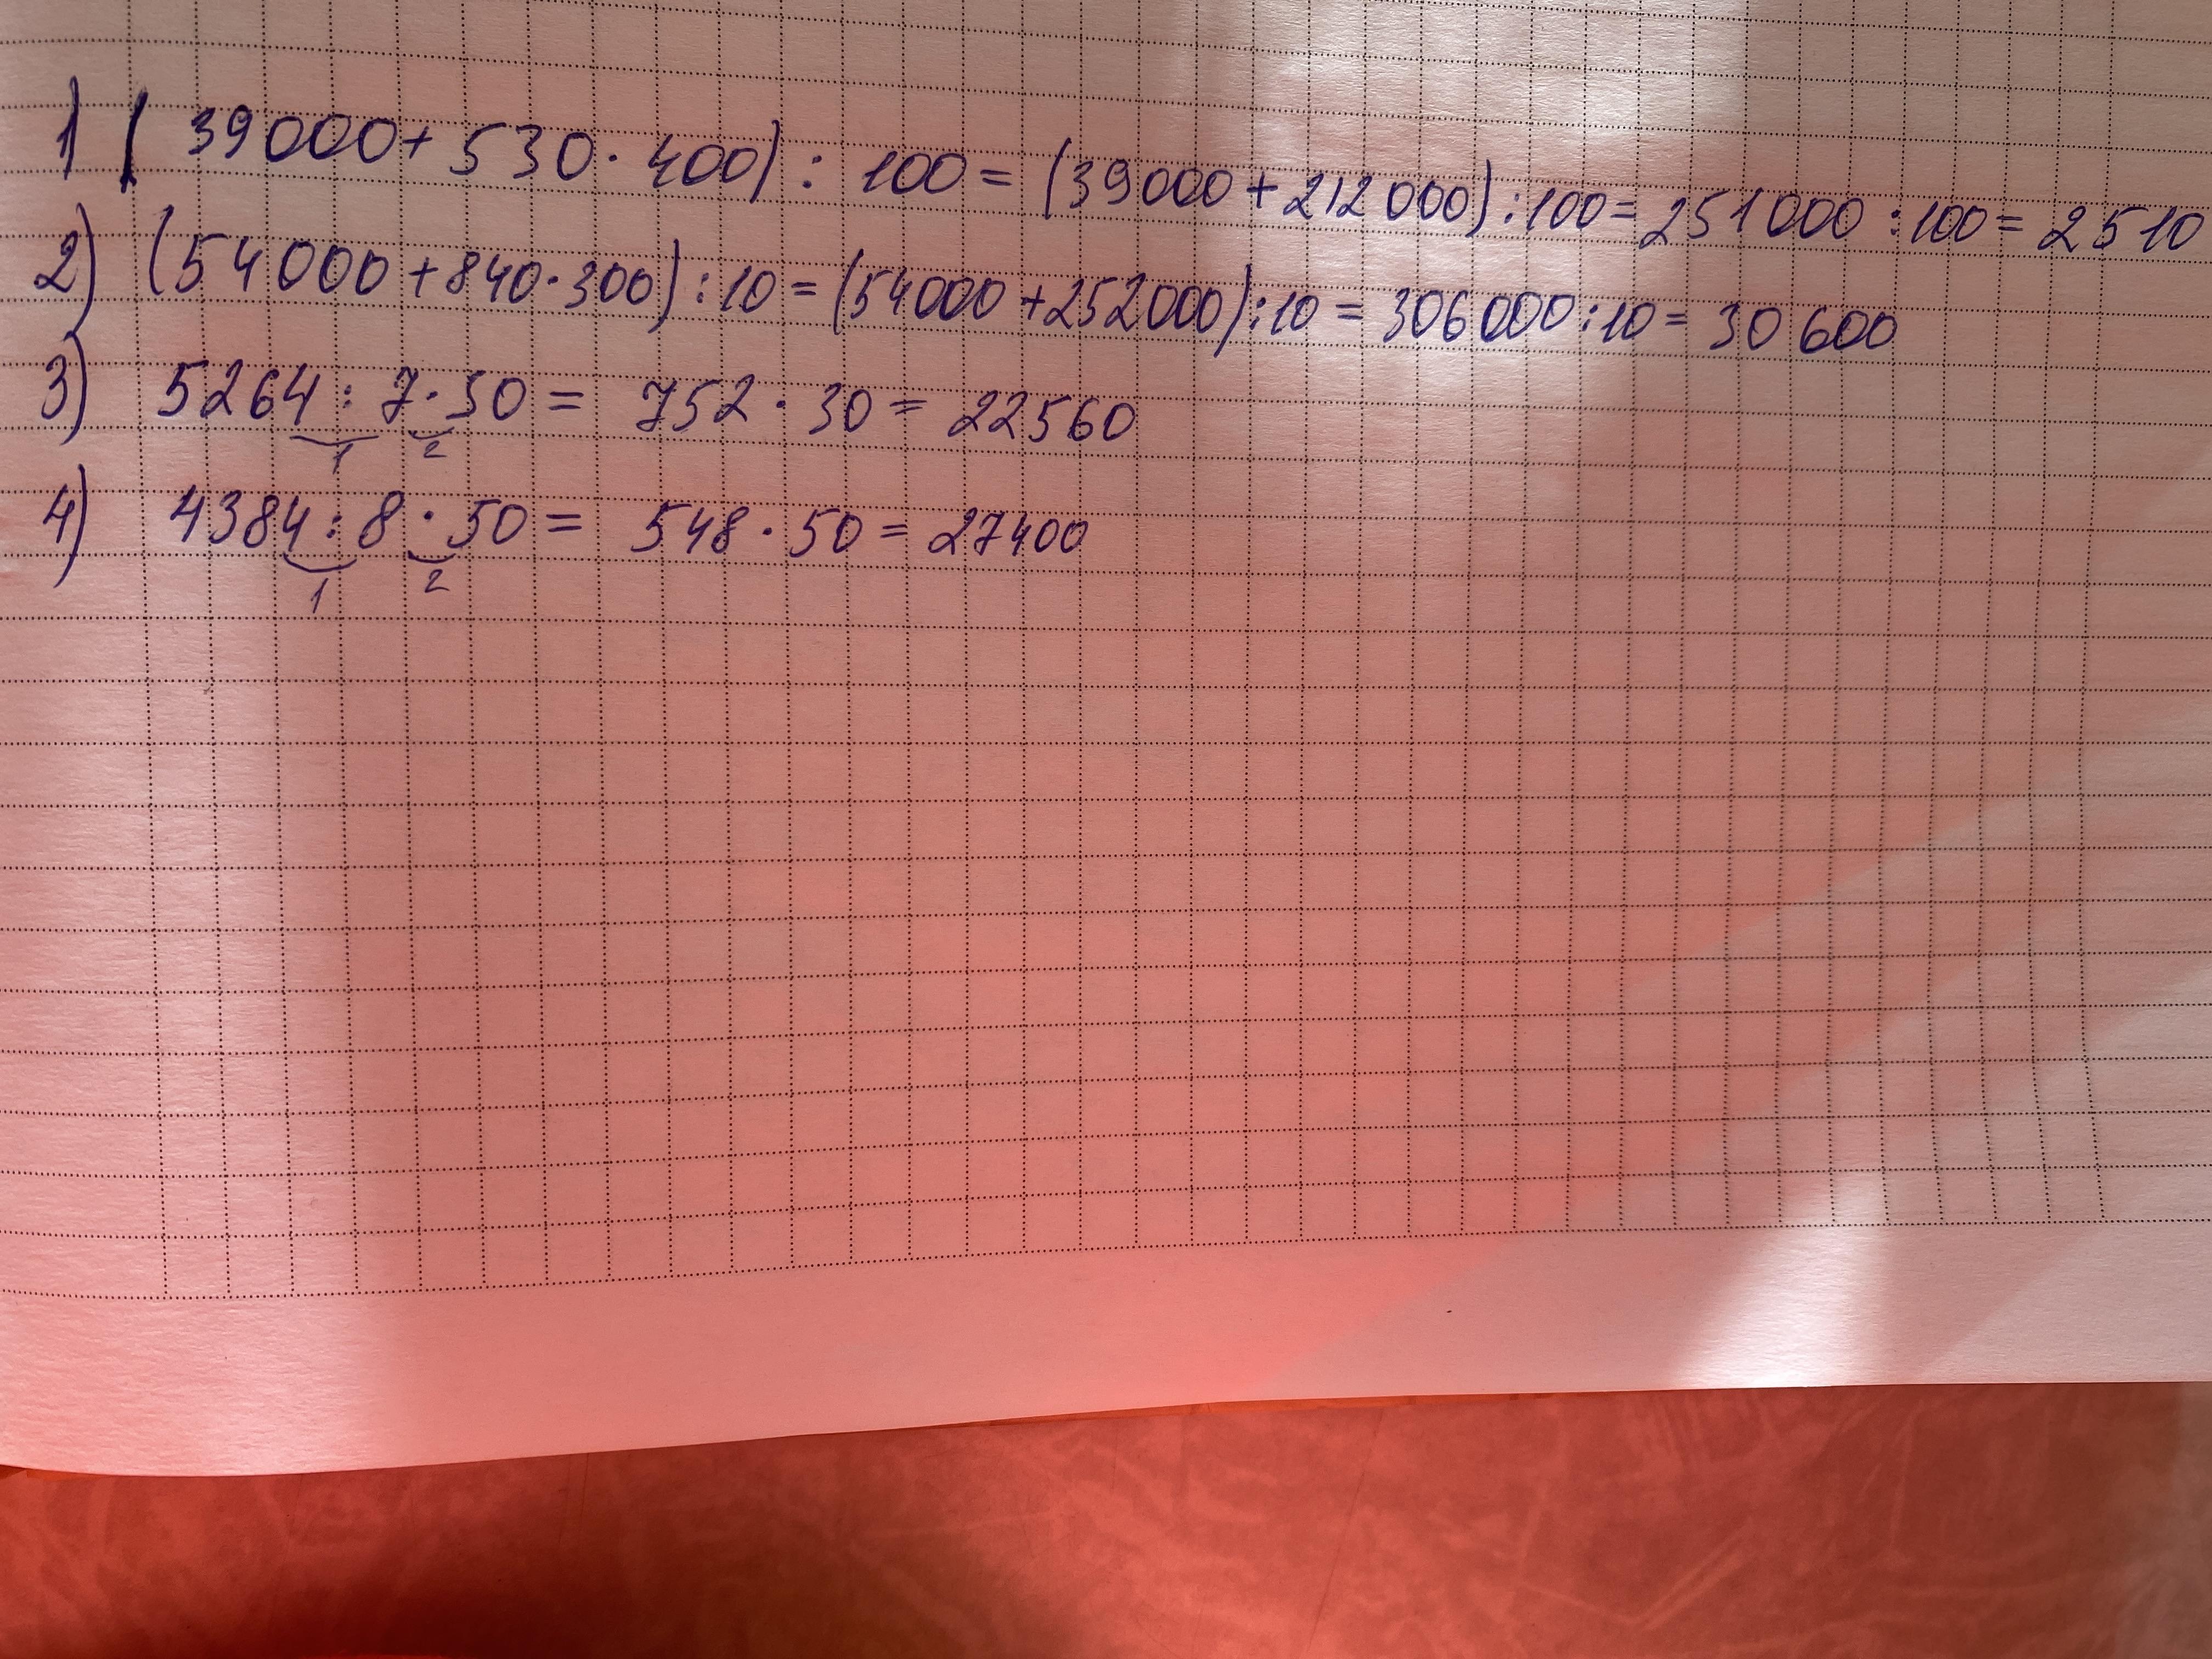 1) (39000+530·400):100=(39000+212000):100=251000:100=2510
2) (54000+840·300):10=(54000+252000):10=306000:10=30600
3) 5264:7·30=752·30=22560
1 2
4) 4384:8·50=548·50=27400
1 2